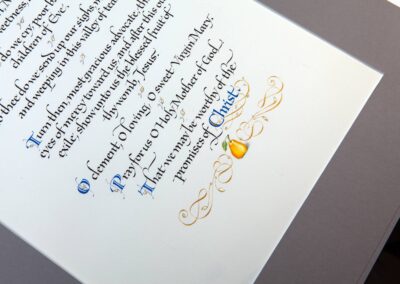 do we cry, poor
children of Eve;
to thee do we send up our sighs, m
and weeping in this valley of tea
Turn then, most gracious advocate, th
eyes of mercy toward us; and after this ou
exile, show unto us the blessed fruit of
thy womb, Jesus;
O clement, O loving, O sweet Virgin Mary:
Pray for us O Holy Mother of God,
That we may be worthy of the
promises of Christ.